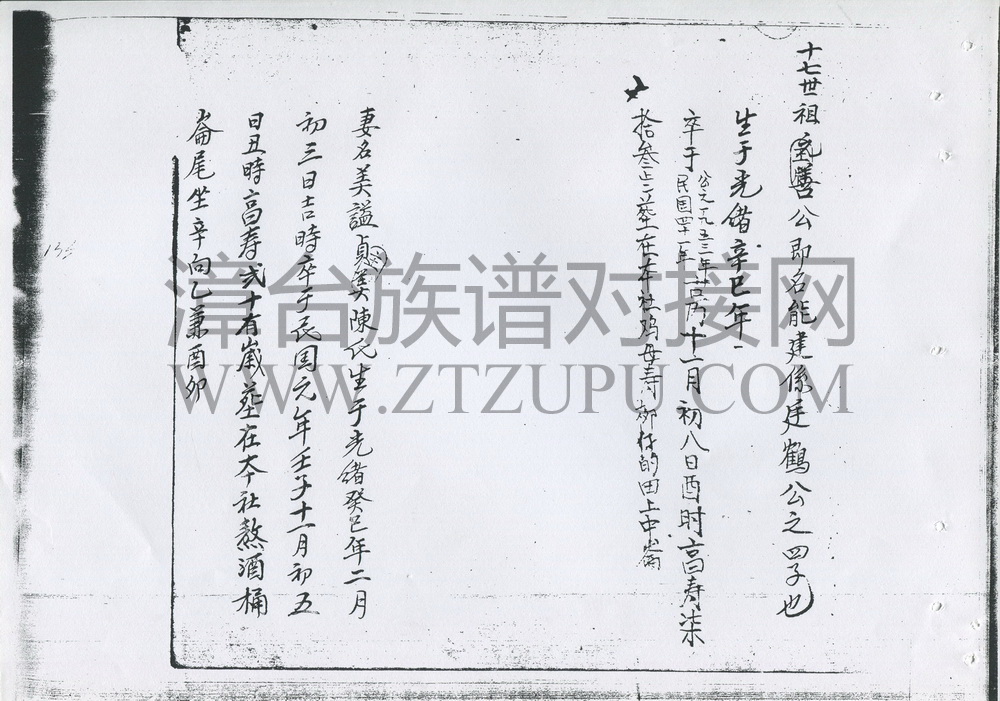 十七世祖乳善公即名能建係廷鶴公之四子也
生于光緒辛巳年
卒于民国四十一年十一月初八日酉时高寿柒
公元一九五三年
拾叁 塟在本社鸡母寿 的田上中崙
妻名美謚貞 陳氏生于光緒癸巳年二月
初三日吉時卒于民国元年壬子十一月初五
日丑時高寿弍十有歲塟在本社熬酒桶
崙尾坐辛向乙兼酉卯
漳台族谱对接网
WWW.ZTZUPU.COM